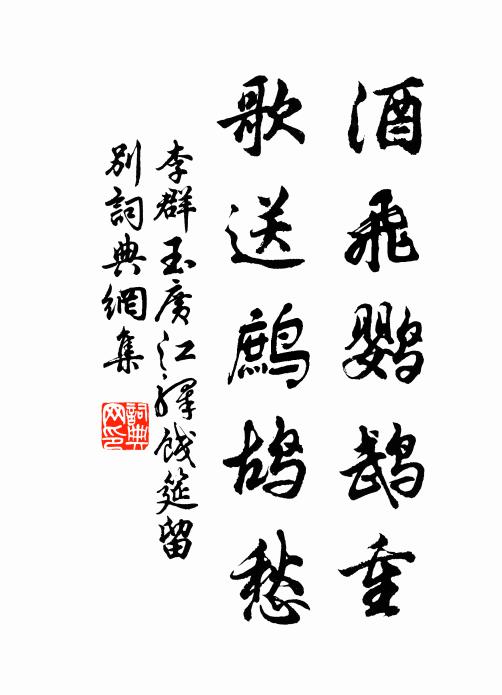 酒飛鸚鵡重
歌送鷓鴣愁
李群玉廣江驛餞筵留
別詞典網集
詞典网印